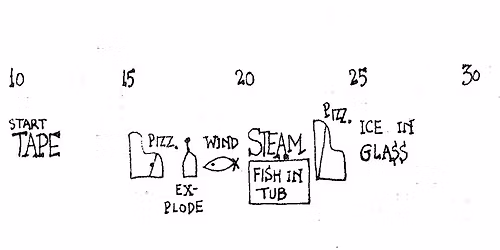 10 15 20 25 30
START
TAPE
PIZZ.
EX-
PLODE
WIND
STEAM
FISH IN
TUB
PIZZ.
ICE IN
GLA$$